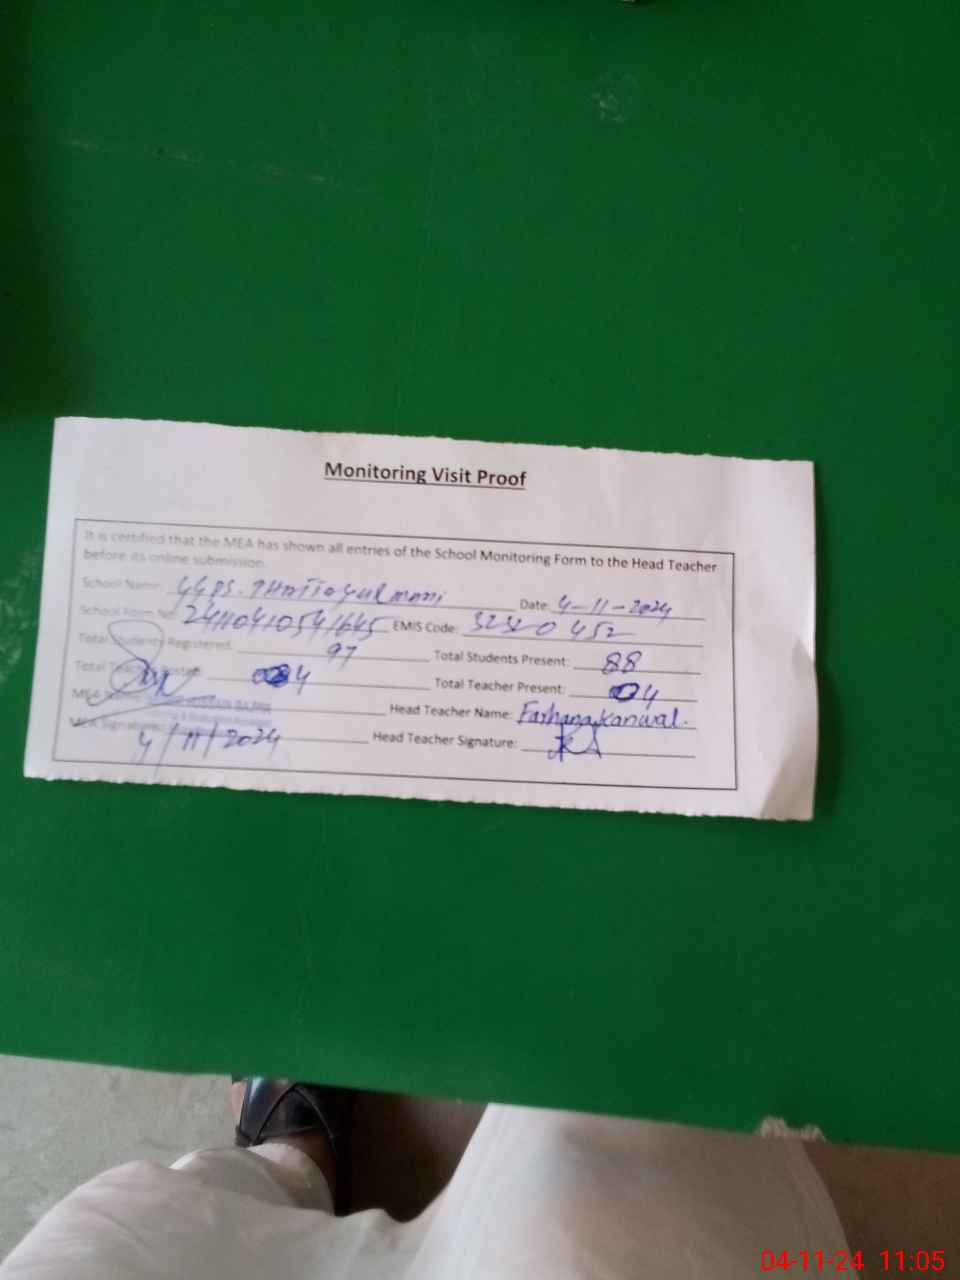 Monitoring Visit Proof
It is certified that the MEA has shown all entries of the School Monitoring Form to the Head Teacher
before its online submission.
School Name: GGPS. Date: 4-11-2024
School Form No EMIS Code: 32320452
Total Students Registered: 97 Total Students Present: 88
Total Teacher 4 Total Teacher Present: 04
MEA Head Teacher Name: Farhana Kanwal.
MEA Signature: 4/11/2024 Head Teacher Signature:
04-11-24 11:05